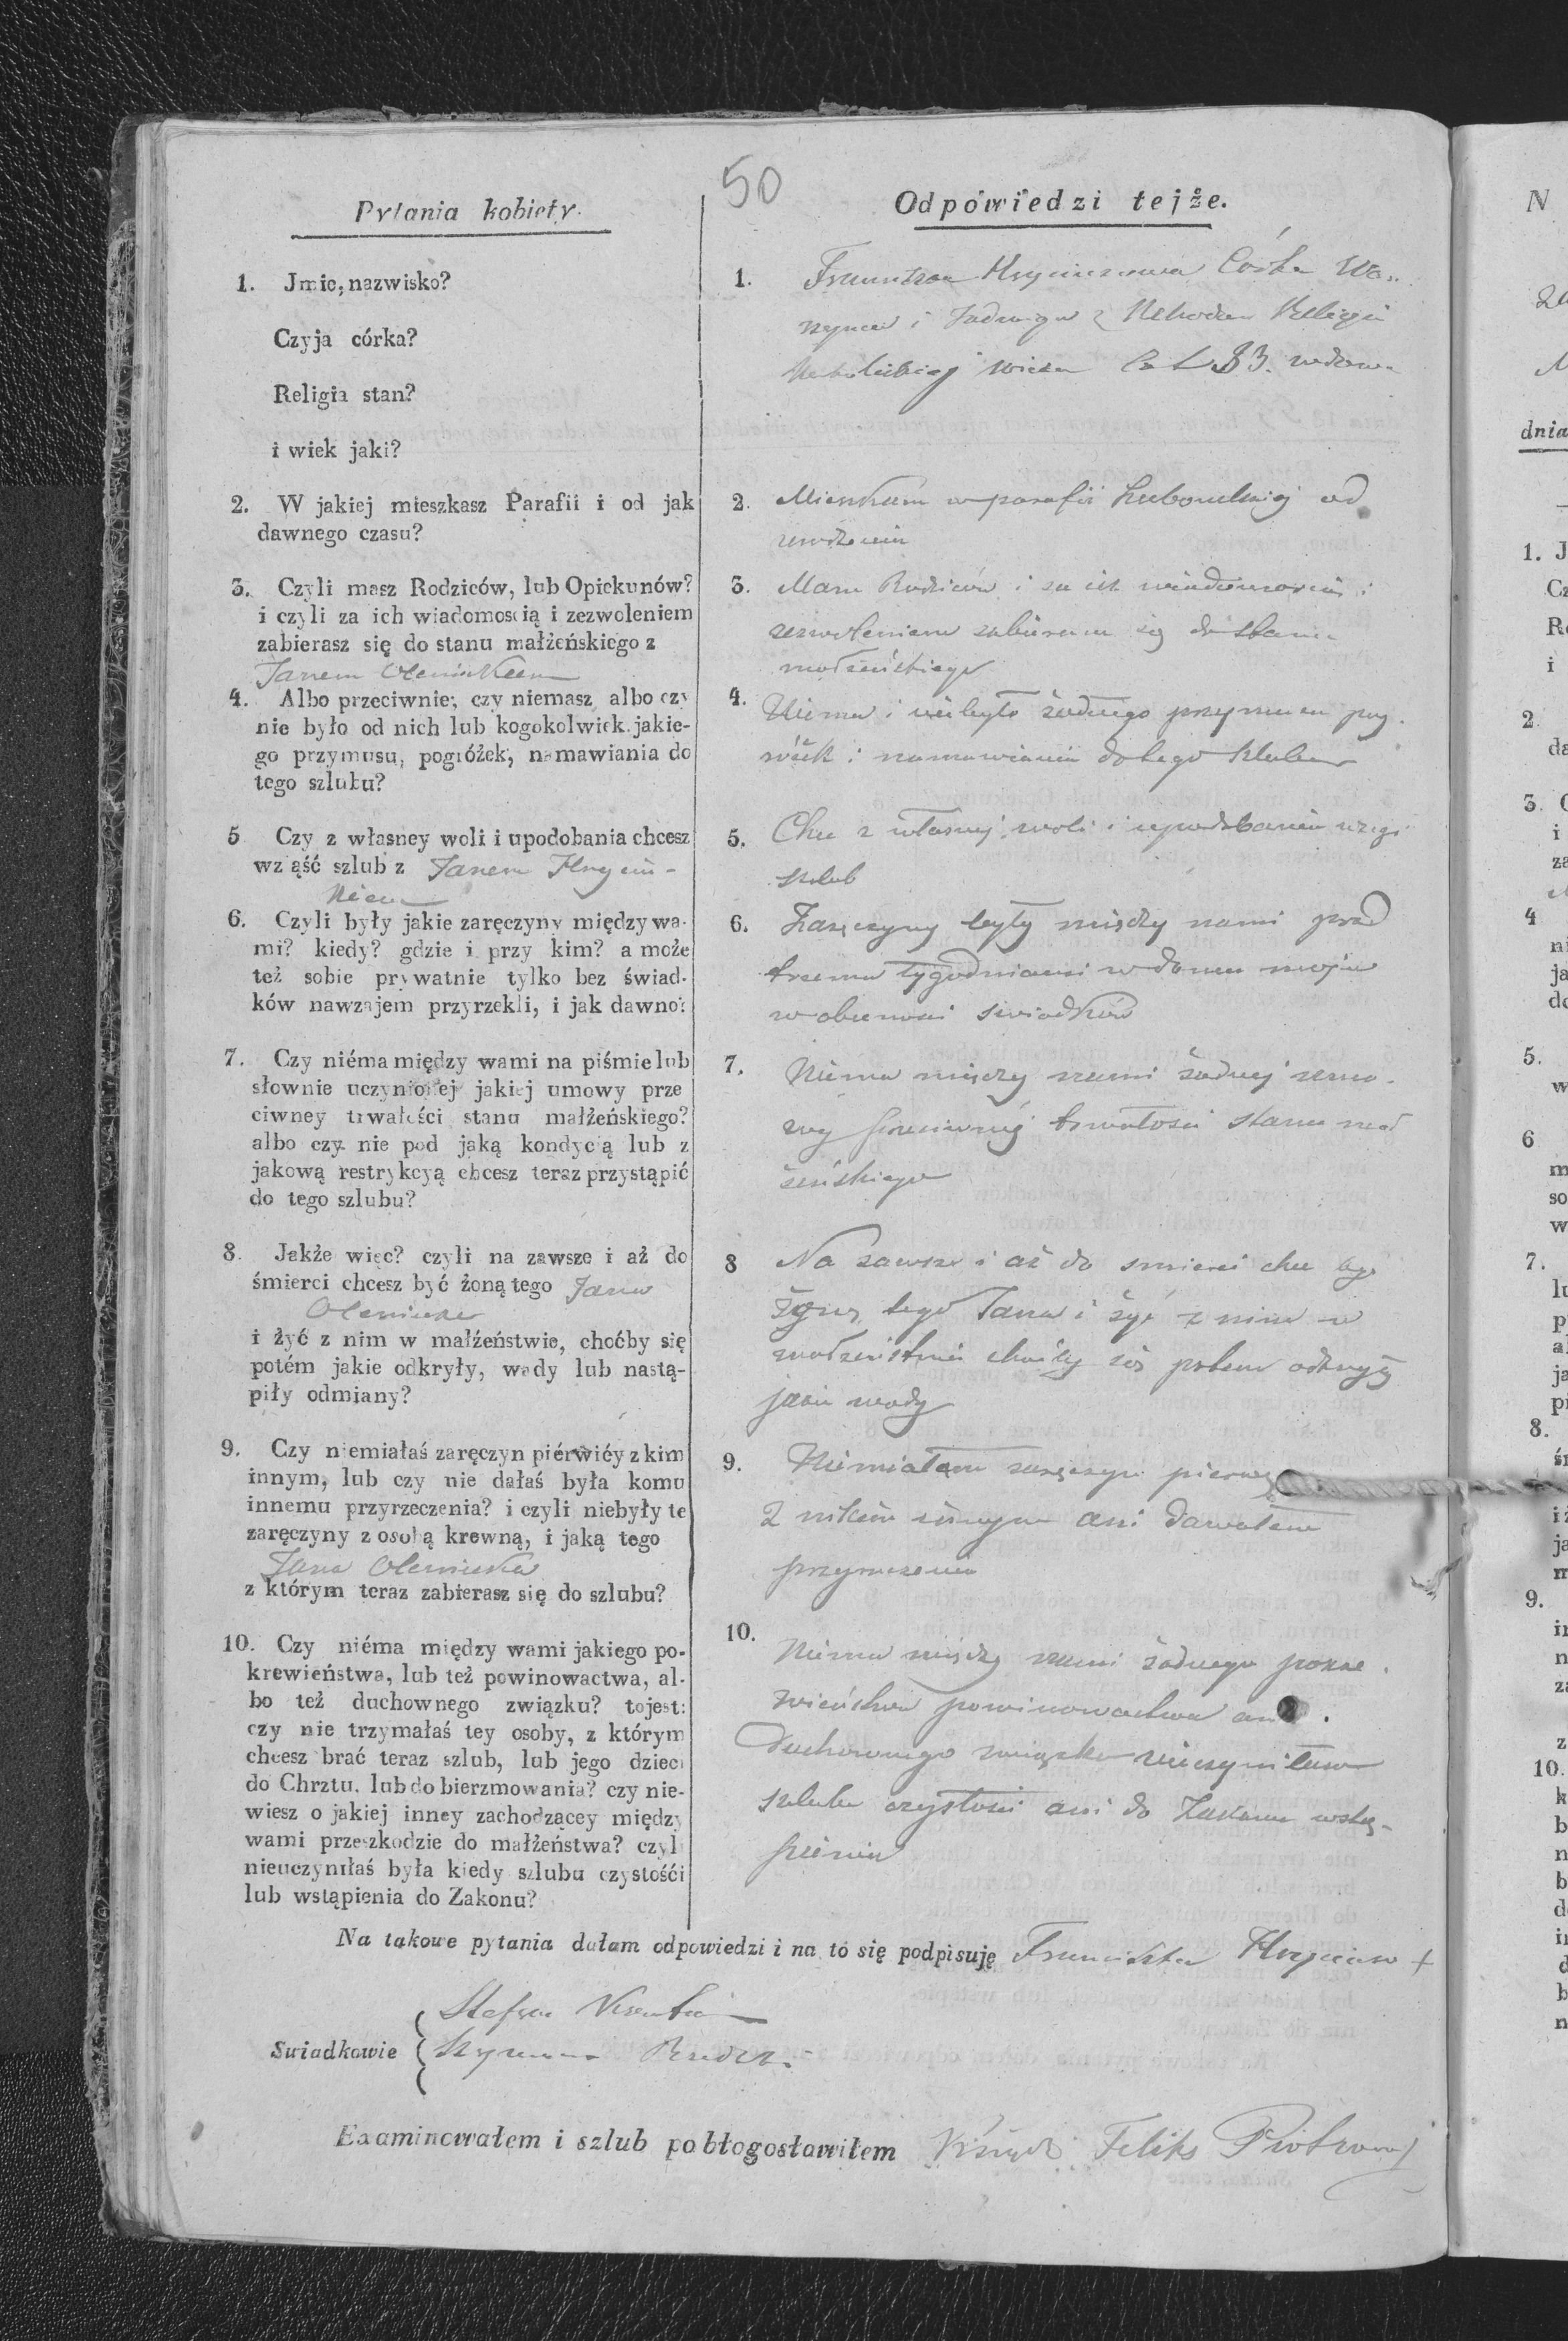 50
Pytania kobiety.
1. Jmie, nazwisko?
Czyja córka?
Religia stan?
i wiek jaki?
2. W jakiej mieszkasz Parafii i od jak
dawnego czasu?
3. Czyli masz Rodziców, lub Opiekunów?
i czyli za ich wiadomoscią i zezwoleniem
zabierasz się do stanu małżeńskiego z
Janem
4. Albo przeciwnie; czy niemasz albo czy
nie było od nich lub kogokolwiek jakie-
go przymusu, pogróżek, namawiania do
tego szlubu?
5 Czy z własney woli i upodobania chcesz
wząść szlub z Janem
6. Czyli były jakie zaręczyny między wa-
mi? kiedy? gdzie i przy kim? a może
też sobie prywatnie tylko bez świad-
ków nawzajem przyrzekli, i jak dawno?
7. Czy niéma między wami na piśmie lub
słownie uczynioney jakiej umowy prze
ciwney trwałości stanu małżeńskiego?
albo czy nie pod jaką kondycią lub z
jakową restrykcyą chcesz teraz przystąpić
do tego szlubu?
8. Jakże więc? czyli na zawsze i aż do
śmierci chcesz być żoną tego Jana
i żyć z nim w małżeństwie, choćby się
potém jakie odkryły, wady lub nastą-
piły odmiany?
9. Czy niemiałaś zaręczyn piérwiéy z kim
innym, lub czy nie dałaś była komu
innemu przyrzeczenia? i czyli niebyły te
zaręczyny z osobą krewną, i jaką tego
Jana
z którym teraz zabierasz się do szlubu?
10. Czy niéma między wami jakiego po-
krewieństwa, lub też powinowactwa, al-
bo też duchownego związku? tojest:
czy nie trzymałaś tey osoby, z którym
chcesz brać teraz szlub, lub jego dzieci
do Chrztu, lub do bierzmowania? czy nie-
wiesz o jakiej inney zachodzącey między
wami przeszkodzie do małżeństwa? czyli
nieuczyniłaś była kiedy szlubu czystośći
lub wstąpienia do Zakonu?
Odpowiedzi tejże.
1. Córka
i Jadwigi z Religii
wieku Lat 33. wdowa
2. Mieszkam w parafii od
urodzenia
3. Mam Rodziców i za ich wiadomoscią i
zezwoleniem zabieram się do stanu
małżeńskiego
4. Niema i niebyło żadnego przymusu pog-
różek i namawiania do tego szlubu
5. Chce z własnej woli i upodobania
szlub
6. Zaręczyny były między nami przed
trzema tygodniami w domu moim
w obecnosci swiadków
7. Niema między nami żadnej umo-
wy przeciwnej trwałosci stanu mał
żeńskiego
8 Na zawsze i aż do smierci chce być
żoną tego Jana i żyć z nim w
małżeństwie choćby się potem odkryły
jakie wady
9. Niemiałam zaręczyn pierwej
z nikim innym ani dawałam
przyrzeczenia
10. Niema między nami żadnego pokre-
wieństwa powinowactwa ani
Duchownego związku nieczyniłam
szlubu czystosci ani do Zakonu wstą-
pienia
Na takowe pytania dałam odpowiedzi i na to się podpisuję Franciszka +
Swiadkowie Stefan
Szymon
Examinowałem i szlub pobłogosławiłem Ksiądz Feliks
N
dnia
1. J
Cz
Re
i
2
da
3.
i
za
4
ni
ja
do
5.
w
6
m
so
w
7.
lu
p
al
ja
pi
8.
śr
i ż
ja
m
9.
in
n
za
z
10.
k
b
n
b
d
in
d
b
n